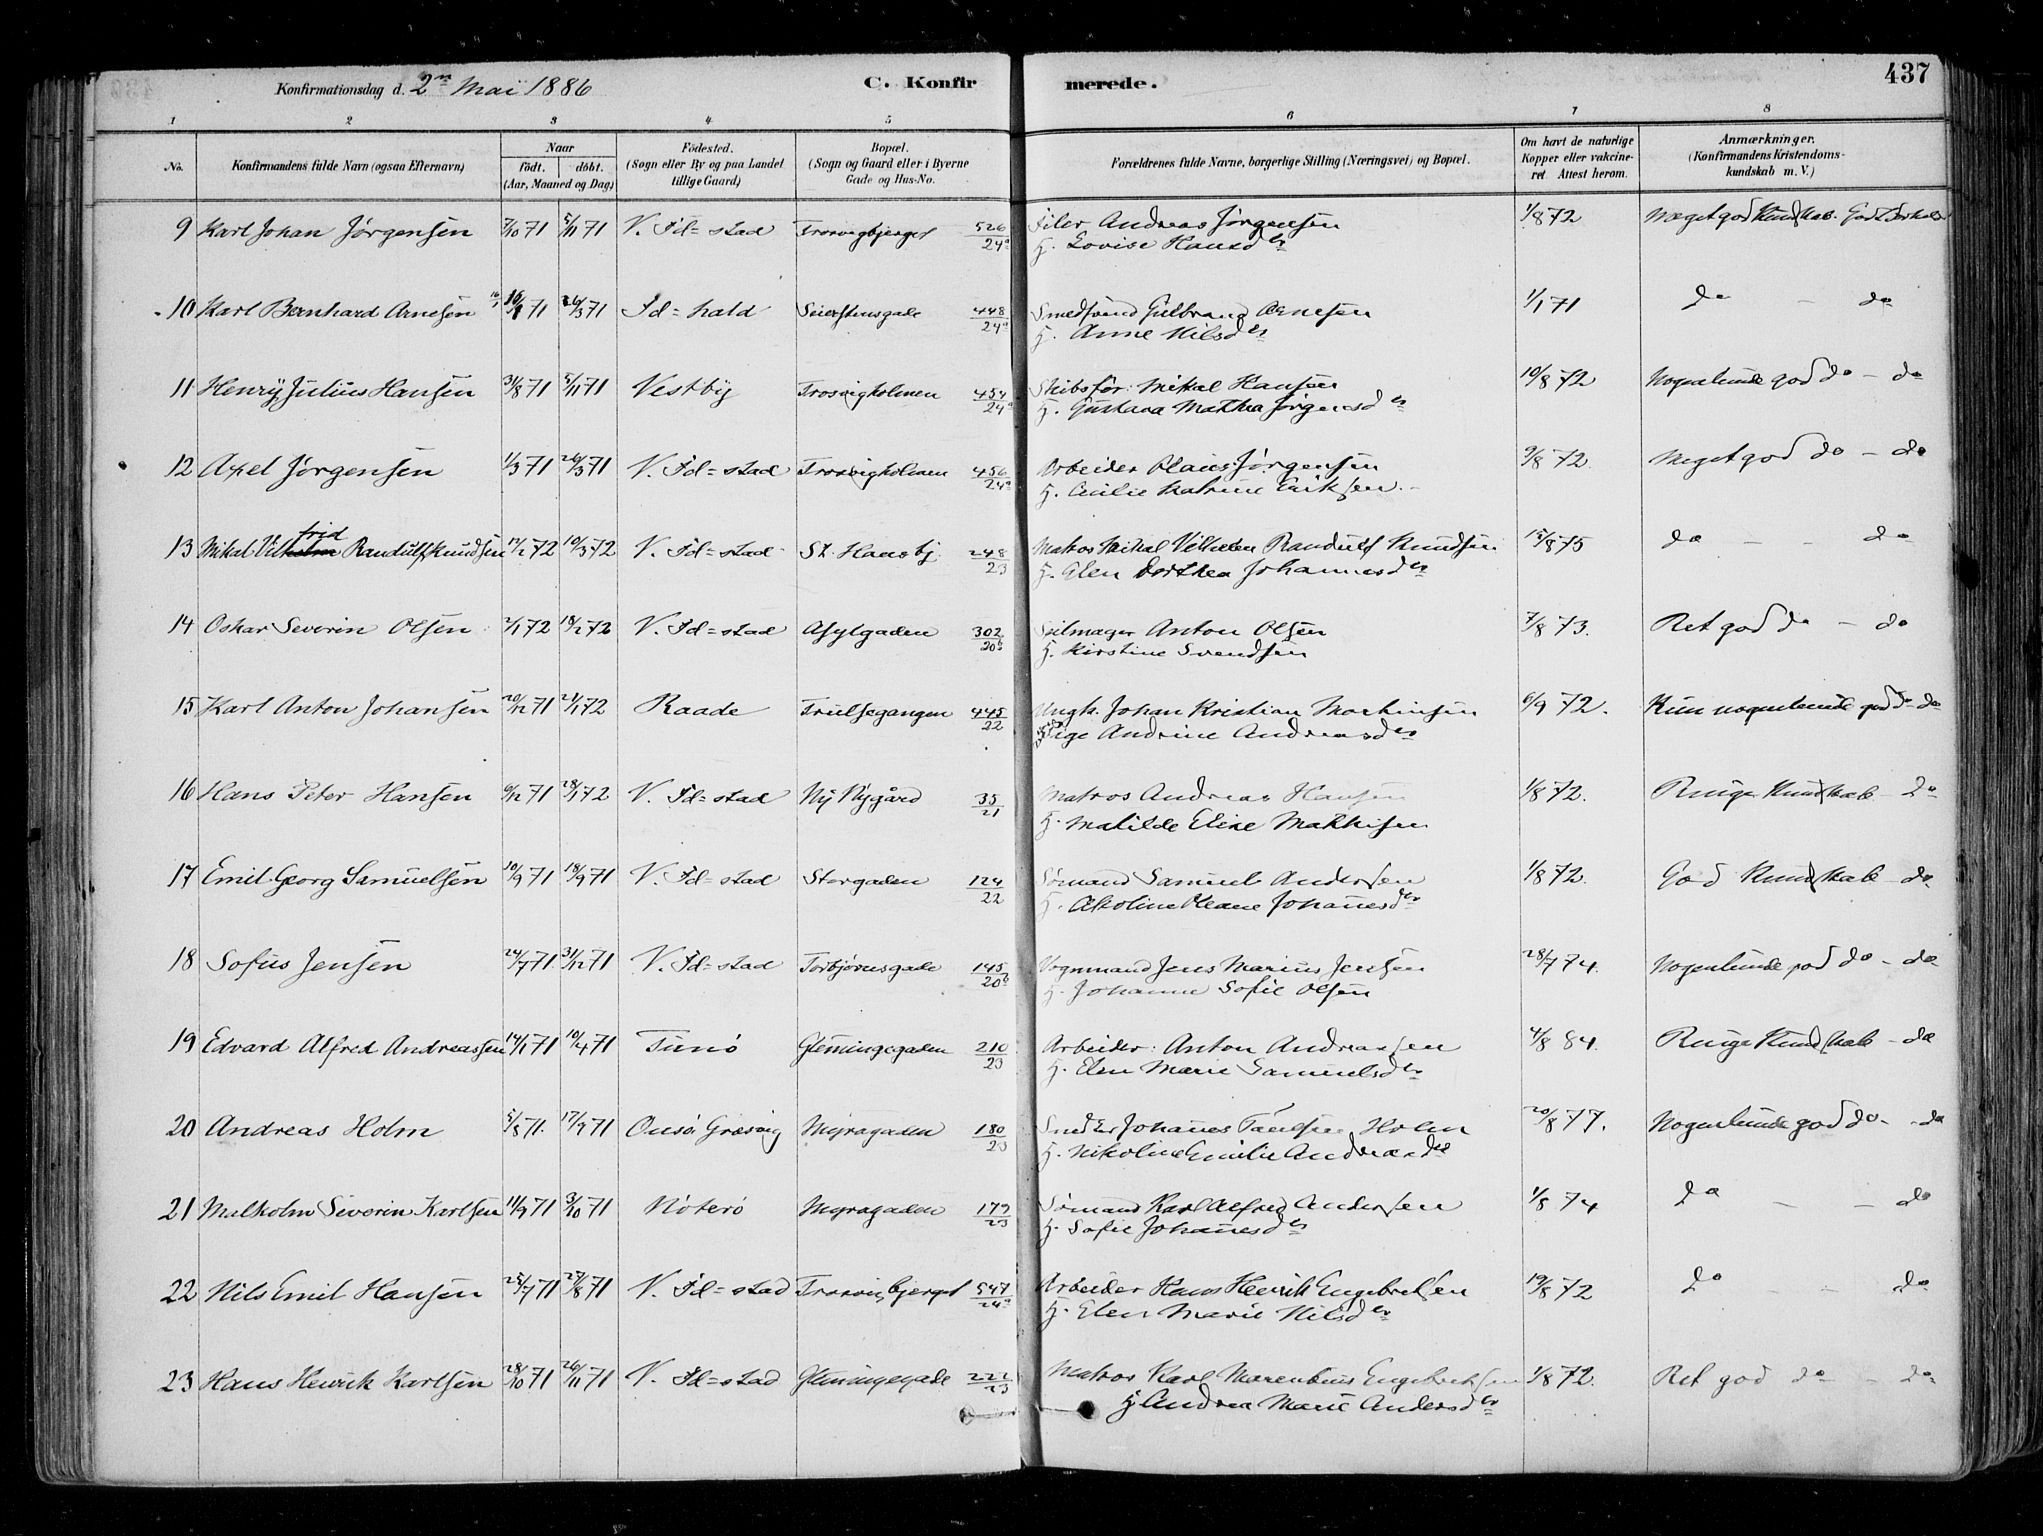 437
Konfirmationsdag d. 2n Mai 1886 C. Konfirmerede.
1 2 3 4 5 6 7 8
No. Konfirmandens fulde Navn (ogsaa Efternavn) Naar født. døbt. (Aar, Maaned og Dag) Fødested. (Sogn eller By og paa Landet tillige Gaard) Bopæl. (Sogn og Gaard eller i Byerne Gade og Hus-No. Forældrenes fulde Navne, borgerlige Stilling (Næringsvei) og Bopæl. Om havt de naturlige Kopper eller vakcineret. Attest herom. Anmærkninger. (Konfirmandens Kristendomskundskab m. V.)
9 Karl Johan Jørgensen 7/10 71 5/11 71 V. Fd=stad Trosvigbjerget 526/24a Filer Andreas Jørgensen 1/8 72 Meget god Kundskab. God Forhold
H. Lovise Hansdr
10 Karl Bernhard Arnesen 16/1 71 26/3 71 Fd=hald Seierstensgade 448/24a Smedsvend Gulbrand Arnesen 1/1 71 do - do
H. Anne Nilsdr
11 Henry Julius Hansen 31/8 71 5/11 71 Vestby Trosvigholmen 454/24a Skibsfør. Mikal Hansen 10/8 72 Nogenlunde god do - do
H. Gustava Mathea Jørgensdr
12 Axel Jørgensen 1/3 71 26/3 71 V. Fd=stad Trosvigholmen 456/24a Arbeider Olaus Jørgensen 9/8 72. Meget god do - do
H. Cecilie Katrine Eriksen.
13 Mikal Vilfrid Randulf Knudsen 17/2 72 10/3 72 V. Fd=stad St. Hansbj. 248/23 Matros Mikal Vilhelm Randulf Knudsen 15/8 75 do - - do
H. Elen Dorthea Johannesdr
14 Oskar Severin Olsen 2/1 72 18/2 72 V. Fd=stad Asylgaden 302/20b Seilmager Anton Olsen 7/8 73. Ret god do - do
H. Kirstine Svendsen
15 Karl Anton Johansen 20/12 71 21/1 72 Raade Trulsegangen 445/22 Ungk. Johan Kristian Martinsen 6/9 72. Kun nogenlunde god do - do
Pige Andrine Andreasdr
16 Hans Peter Hansen 6/12 71 28/1 72 V. Fd=stad Ny Nygård 35/21 Matros Andreas Hansen 1/8 72. Ringe Kundskab do
H. Matilde Elise Mathisen
17 Emil Georg Samuelsen 10/9 71 18/9 71 V. Fd=stad Storgaden 124/22 Sømand Samuel Andersen 1/8 72. God Kundskab do.
H. Oleane Johanesdr
18 Sofus Jensen 24/7 71 31/12 71 V. Fd=stad Torbjørnsgade 145/20b Vognmand Jens Marius Jensen 28/7 74. Nogenlunde god do - do
H. Johanne Sofie Olsen
19 Edvard Alfred Andreassen 14/1 71 10/4 71 Tunø Glemmingegaden 210/23 Arbeider. Anton Andreassen 4/8 84. Ringe Kundskab - do
H. Elen Marie Samuelsdr
20 Andreas Holm 5/8 71. 17/9 71 Onsø Græsvig Myragaden 180/23 Snedker Johanes Holm 20/8 77. Nogenlunde god do - do
H. Nikoline Emilie Andreasdr
21 Malkolm Severin Karlsen 11/9 71 3/10 71 Nøterø Myragaden 179/23 Sømand Karl Alfred Andersen 1/8 74 do - - do
H. Sofie Johanesdr
22 Nils Emil Hansen 25/7 71 27/8 71 V. Fd=stad Trosvigbjerget 547/24a Arbeider Hans Henrik Engebretsen 19/8 72 do - - do
H. Elen Marie Nilsdr
23 Hans Henrik Karlsen 28/10 71 26/11 71 V. Fd=stad Glemmingegade 222/23 Matros Karl Marentius Engebretsen 1/8 72. Ret god do - do
H. Andrea Marie Andersdr